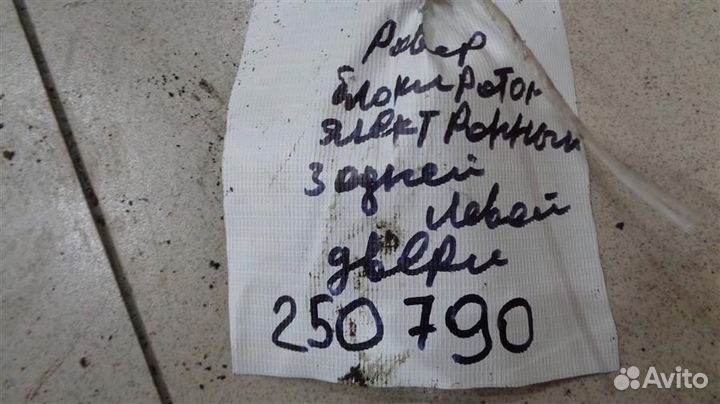 Ровер
блокиратор
электронный
задней
левой
двери
250790
Avito